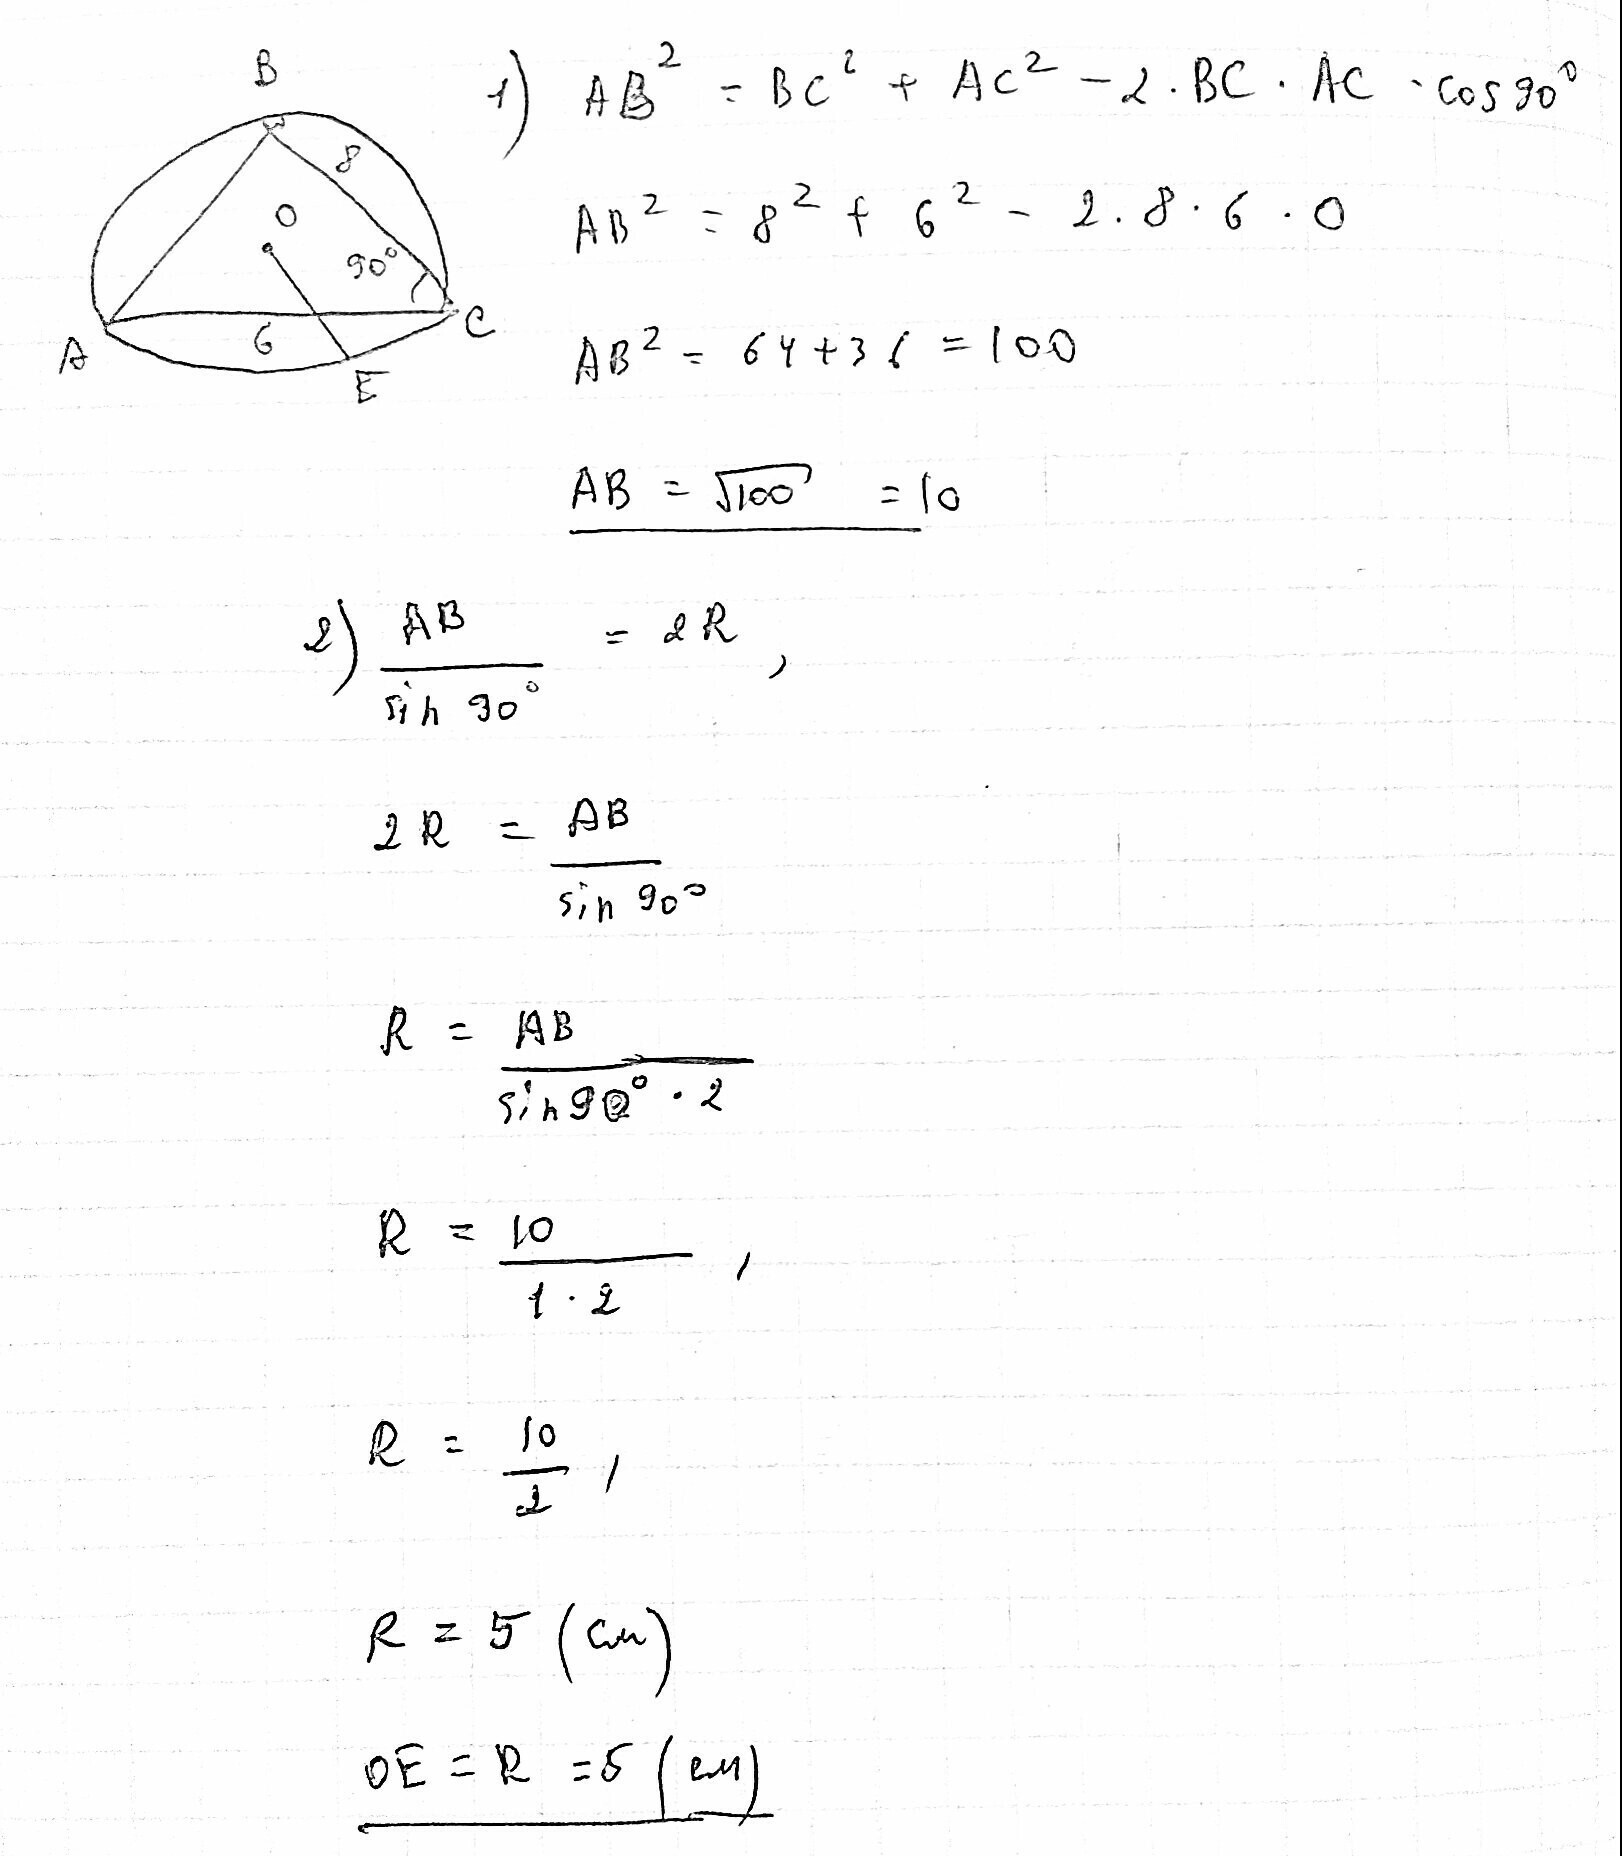 B
8
O
90°
A
6
C
E
1) AB² = BC² + AC² - 2 · BC · AC · cos 90°
AB² = 8² + 6² - 2 · 8 · 6 · 0
AB² = 64 + 36 = 100
AB = √100 = 10
2) AB / sin 90° = 2R,
2R = AB / sin 90°
R = AB / sin 90° · 2
R = 10 / 1 · 2,
R = 10 / 2,
R = 5 (см)
OE = R = 5 (см)